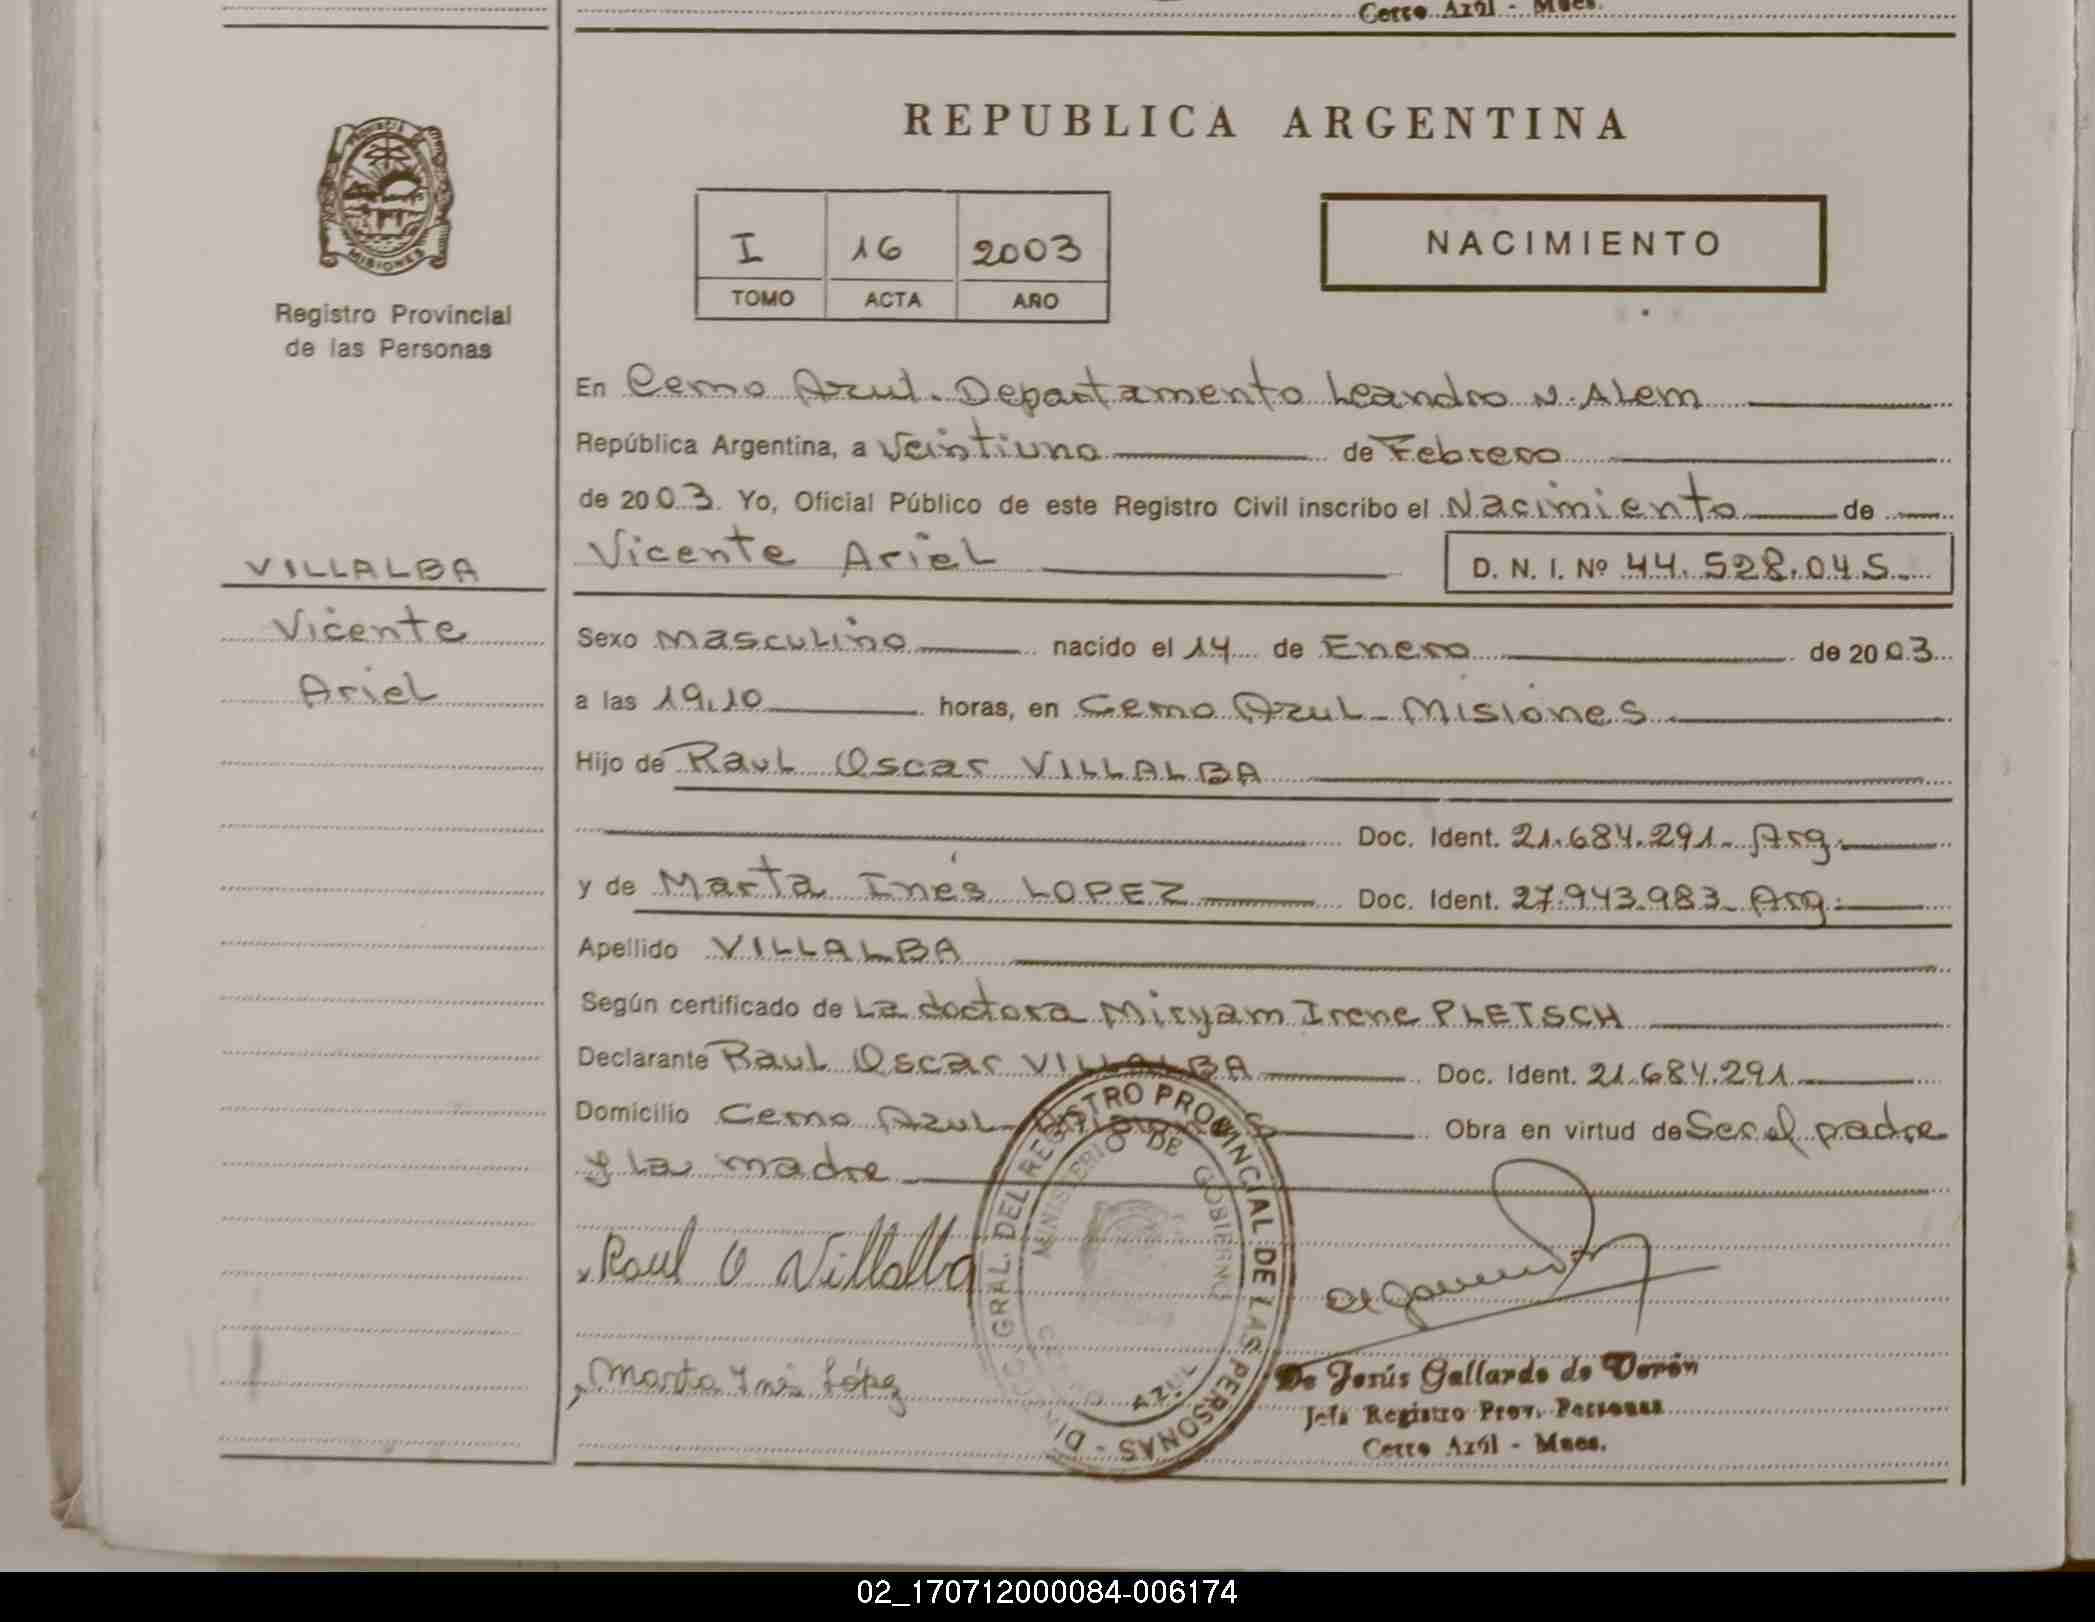 Cerro Azul - Mnes.
REPUBLICA ARGENTINA
PROVINCIA DE
MISIONES
Registro Provincial
de las Personas
I 16 2003
TOMO ACTA AÑO
NACIMIENTO
En Cerro Azul. Departamento Leandro N. Alem
República Argentina, a Veintiuno de Febrero
de 2003. Yo, Oficial Público de este Registro Civil inscribo el Nacimiento de
Vicente Ariel D. N. I. Nº 44.528.045
VILLALBA
Vicente
Ariel
Sexo Masculino nacido el 14 de Enero de 2003
a las 19,10 horas, en Cerro Azul - Misiones
Hijo de Raul Oscar VILLALBA
Doc. Ident. 21.684.291- Arg.
y de Marta Inés LOPEZ Doc. Ident. 27.943.983- Arg.
Apellido VILLALBA
Según certificado de La doctora Miryam Irene PLETSCH
Declarante Raul Oscar VILLALBA Doc. Ident. 21.684.291
Domicilio Cerro Azul - Misiones Obra en virtud de Ser el padre
y la madre
Raul O Villalba
Marta Inés López
DIRECC. GRAL. DEL REGISTRO PROVINCIAL DE LAS PERSONAS -
MINISTERIO DE GOBIERNO
CERRO AZUL
De Jesús Gallardo de Verón
Jefa Registro Prov. Personas
Cerro Azúl - Mnes.
02_170712000084-006174